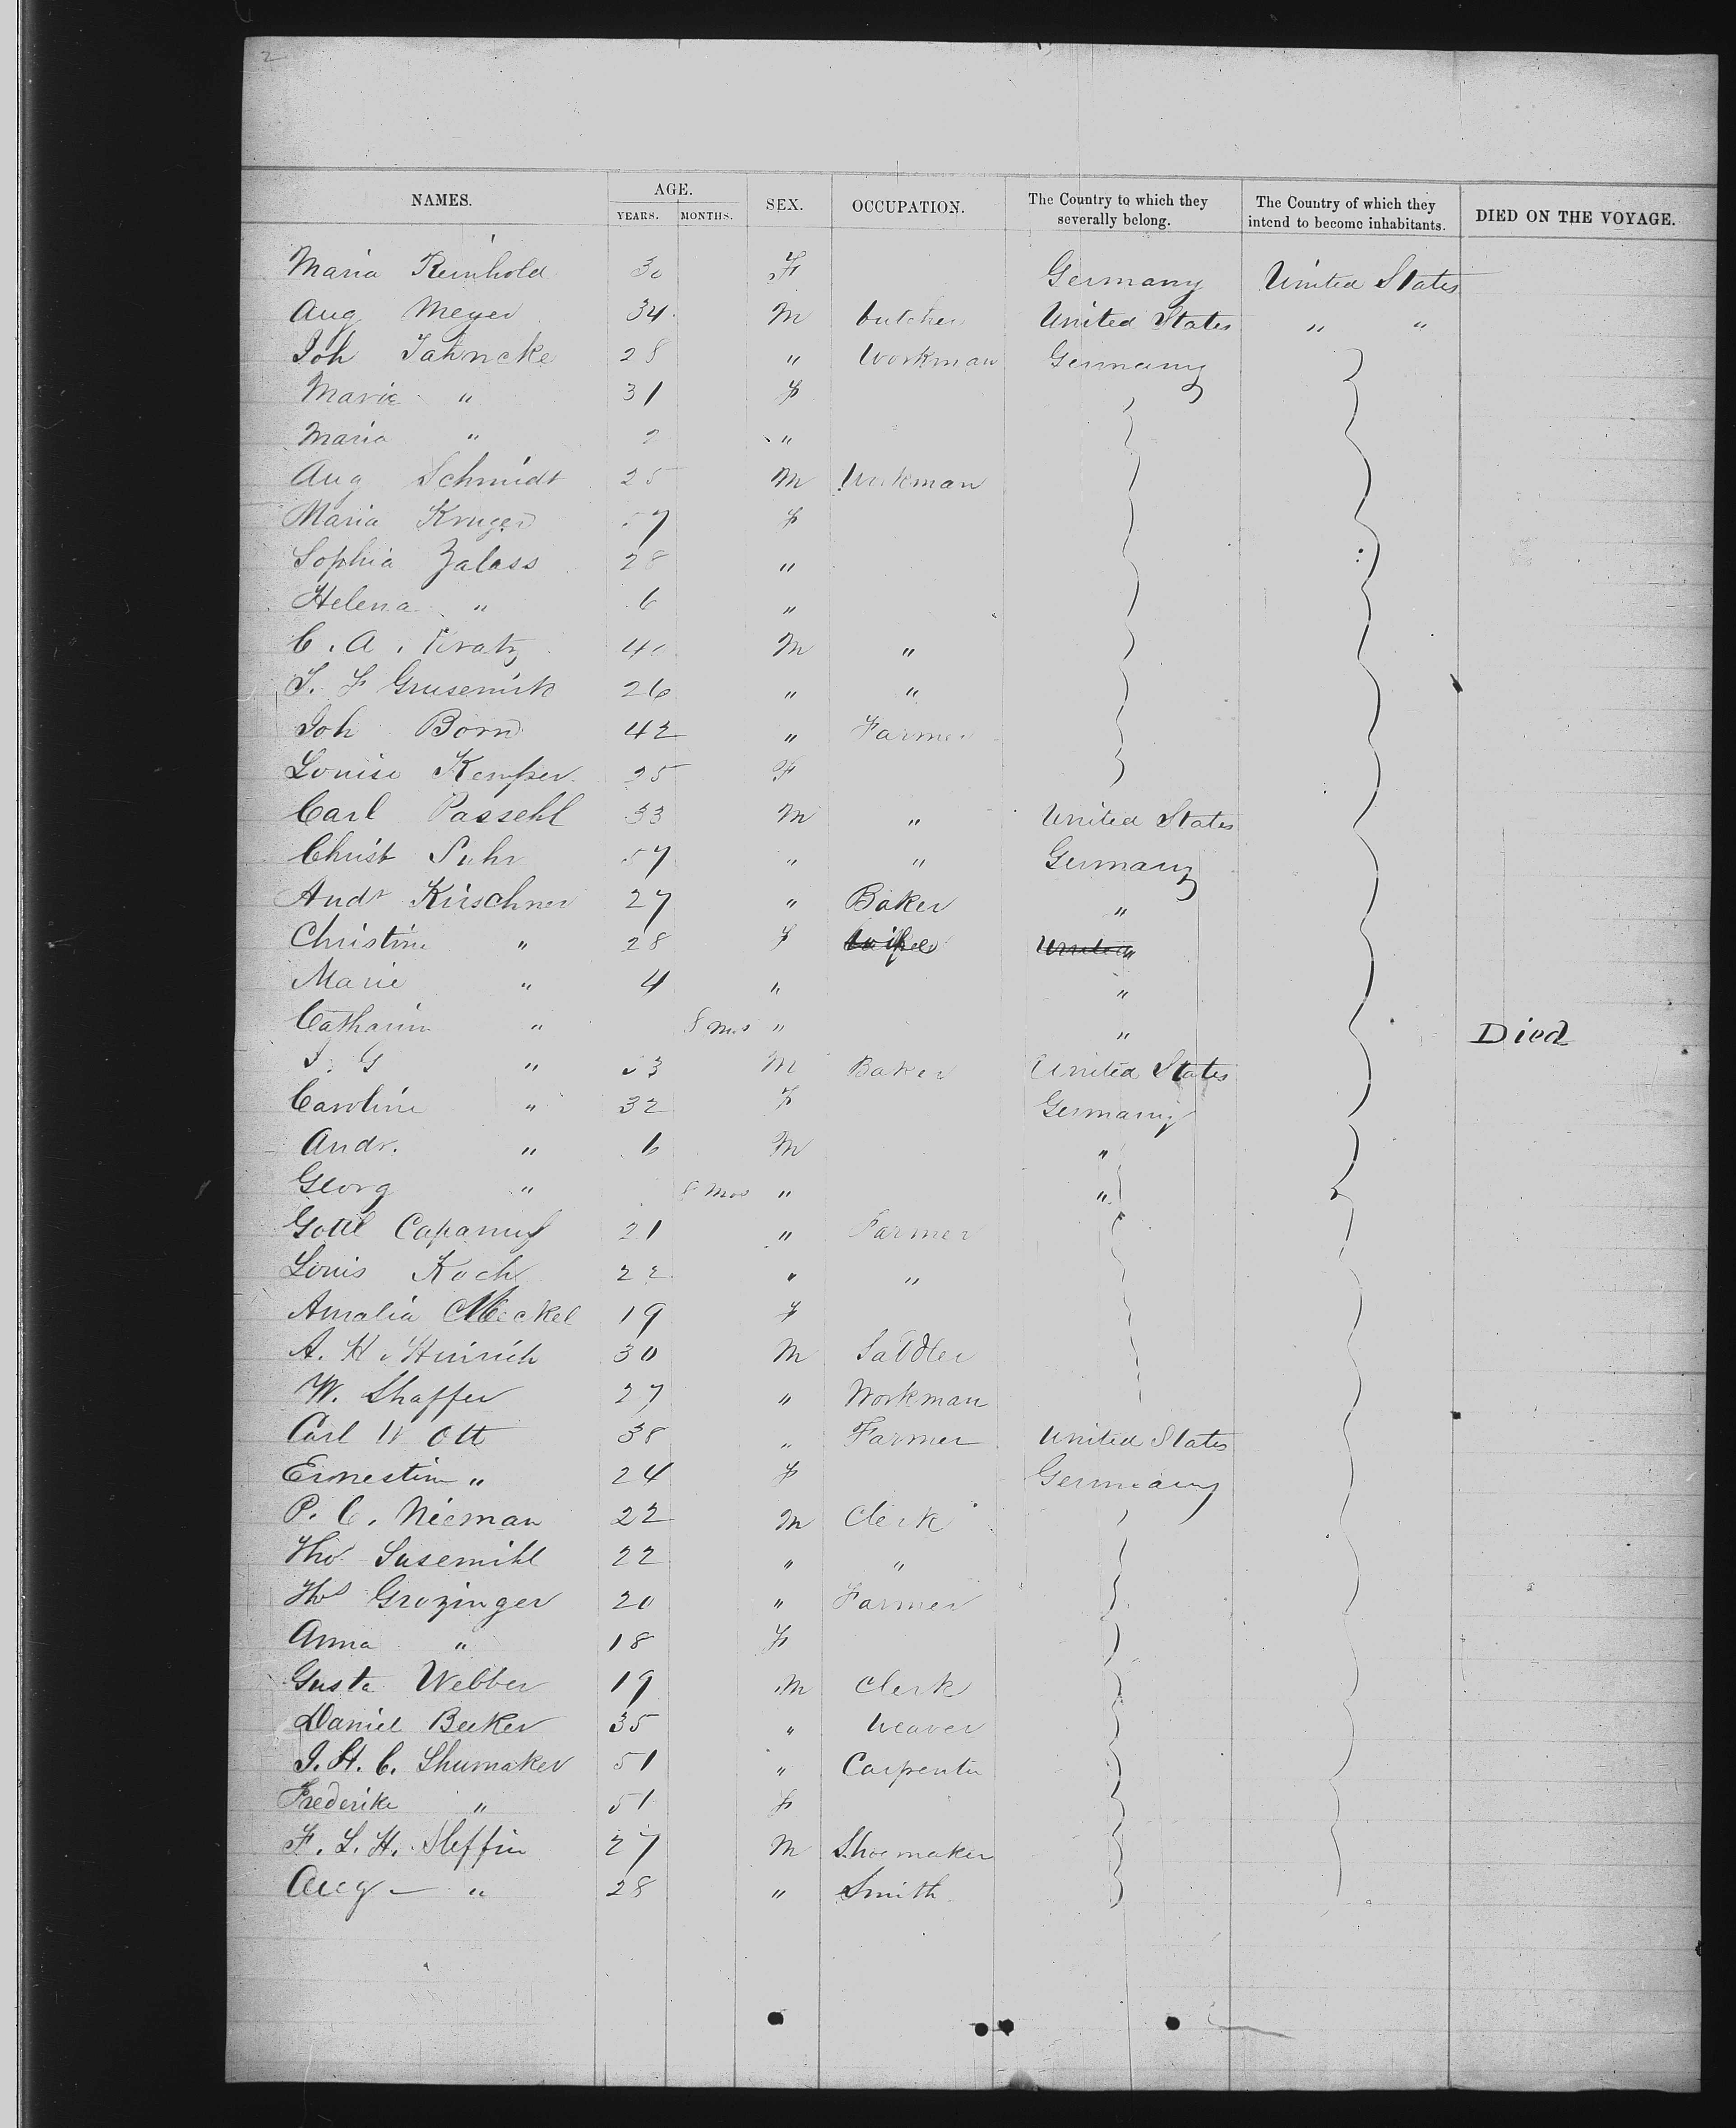 2
NAMES. AGE. YEARS. MONTHS. SEX. OCCUPATION. The Country to which they severally belong. The Country of which they intend to become inhabitants. DIED ON THE VOYAGE.
Maria Reinhold 30 F Germany United States
Aug Meyer 34 M butcher United States " "
Joh Jahncke 28 " Workman Germany
Marie " 31 F
Maria " 2 "
Aug Schmidt 25 M Workman
Maria Kruger 57 F
Sophia Zalass 28 "
Helena " 6 "
C. A. Kratz 40 M "
26 " "
Joh Born 42 " Farmer
Louise Kemper 25 F
Carl Passehl 33 M " United States
Christ Suhr 57 " " Germany
Andr Kirschner 27 " Baker "
Christine " 28 F wife United "
Marie " 4 " "
Catharin " 8 Mos " " Died
J. G " 33 M Baker United States
Caroline " 32 F Germany
Andr. " 6 M "
Georg " 8 Mos " "
Gottl 21 " Farmer
Louis Koch 22 " "
Amalia Meckel 19 F
A. H. Hinrich 30 M Saddler
W. Shaffer 27 " Workman
Carl W Ott 38 " Farmer United States
Ernestin " 24 F Germany
P. C. Nieman 22 M Clerk
Susemihl 22 " "
Grozinger 20 " Farmer
Anna " 18 F
Gusta Webber 19 M Clerk
Daniel Becker 35 " Weaver
J. H. C. Shumaker 51 " Carpenter
Frederike " 51 F
F. L. H. Steffin 27 M Shoemaker
Aug — " 28 " Smith